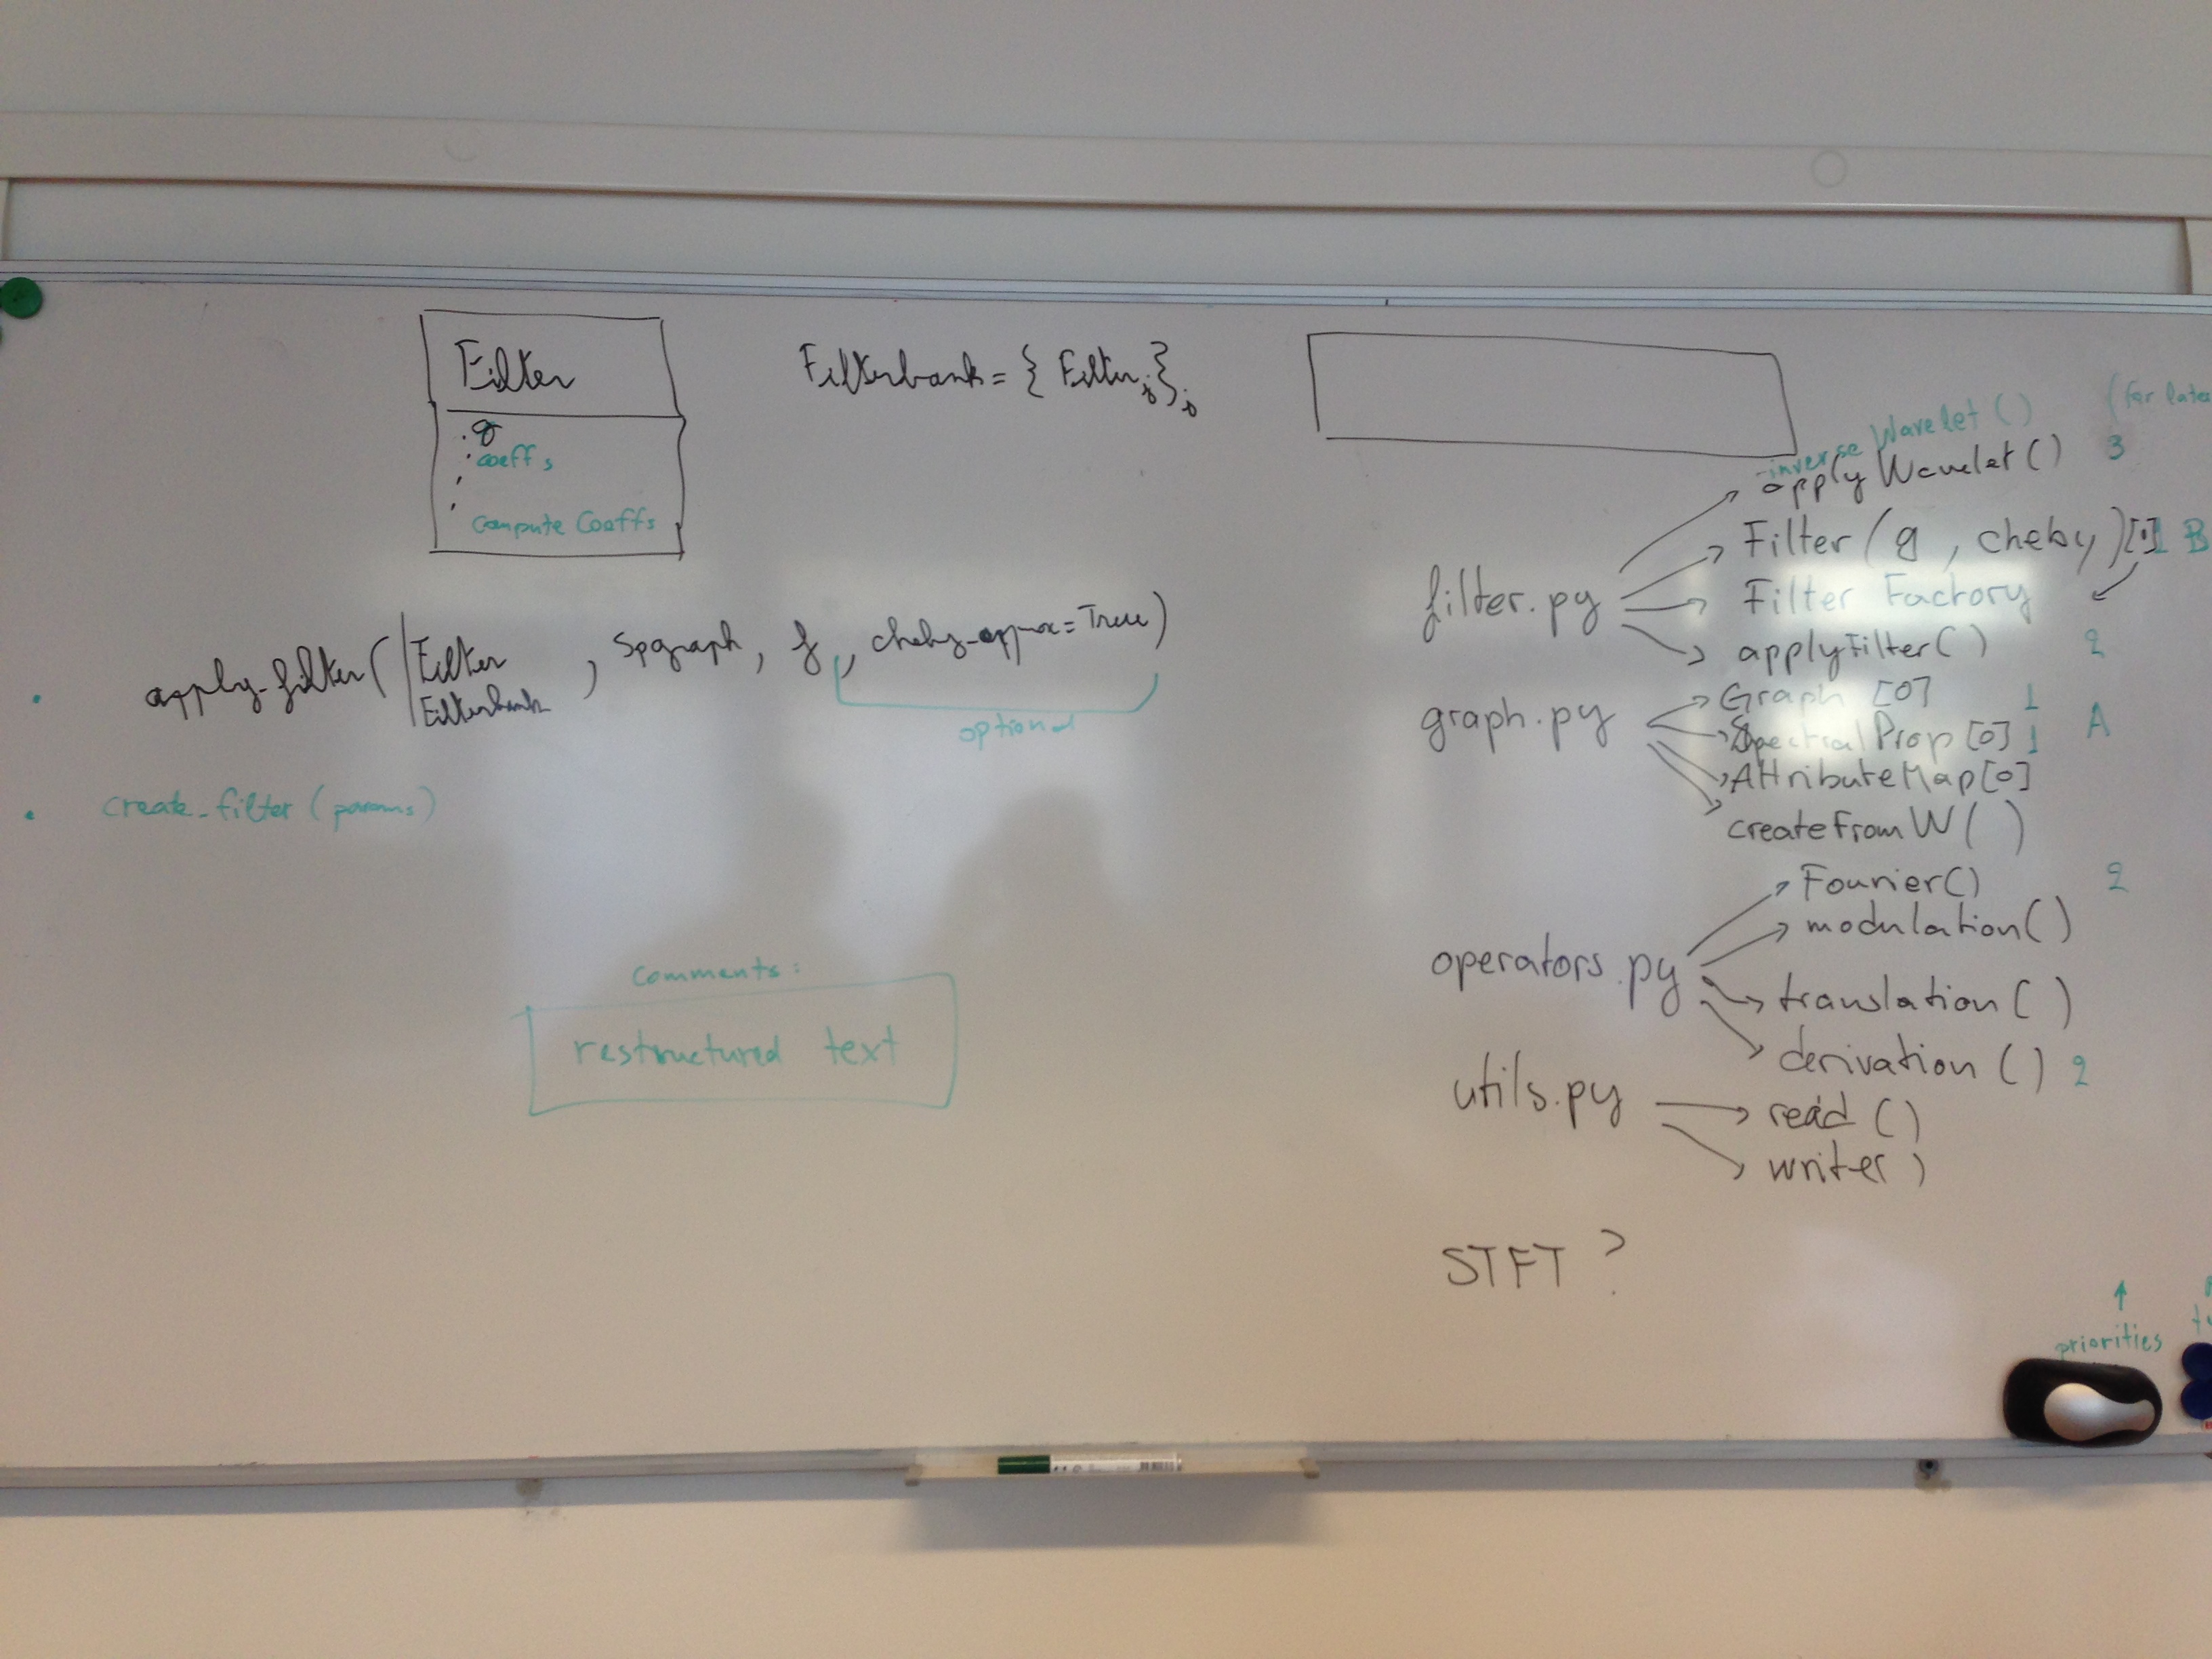 Filter
. g
. coeffs
compute Coeffs
Filterbank = { Filter_j }_j
apply-filter( | Filter , Spgraph, f , cheby-approx = True )
Filterbank
optional
. create_filter (params)
comments :
restructured text
inverse Wavelet () (for later
filter.py
applyWavelet() 3
Filter (g, cheby) B
Filter Factory
applyFilter() 2
graph.py
Graph [0] 1
SpectralProp [0] 1 A
AttributeMap [0]
createFromW ( )
operators.py
Fourier() 2
modulation()
translation ( )
derivation () 2
utils.py
read ()
write )
STFT ?
↑
priorities